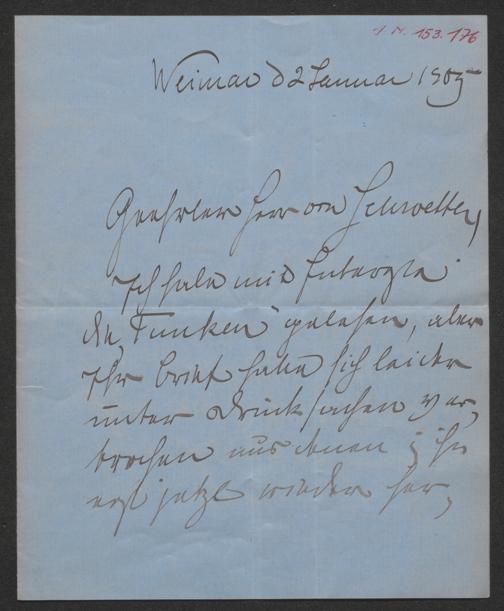 I.N. 153.176
Weimar d 2 Januar 1905
Geehrter Herr von Schroetter,
Ich habe mit
die „Funken“ gelesen, aber
Ihr Brief hatte sich leider
unter Drucksachen ver-
krochen aus denen ich ihn
erst jetzt wieder her-